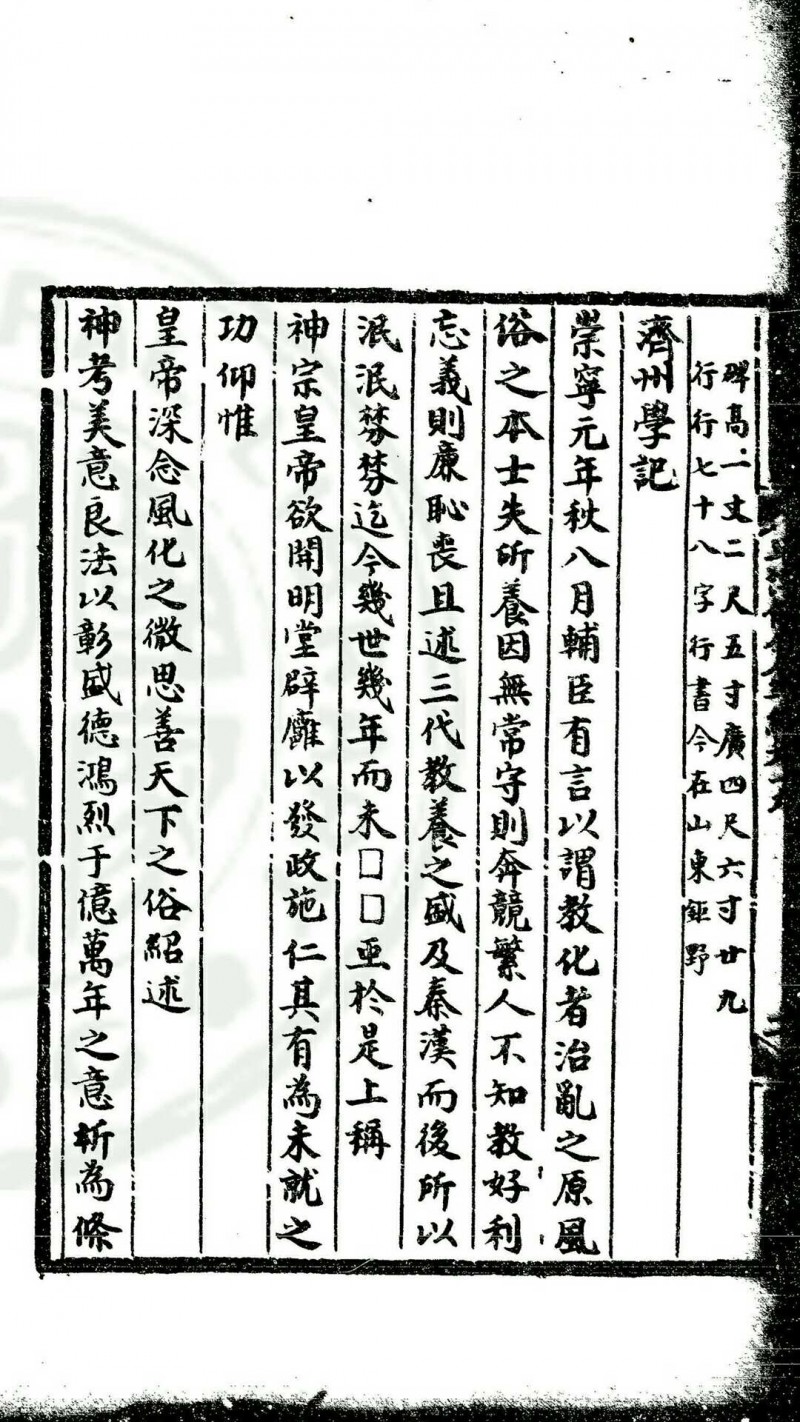 碑高一丈二尺五寸廣四尺六寸廿九
行行七十八字行書今在山東鉅野
濟州學記
崇寧元年秋八月輔臣有言以謂教化者治亂之原風
俗之本士失所養因無常守則奔競繁人不知教好利
忘義則廉恥喪且述三代教養之盛及秦漢而後所以
泯泯棼棼迄今幾世幾年而未□□亟於是上稱
神宗皇帝欲開明堂辟廱以發政施仁其有為未就之
功仰惟
皇帝深念風化之微思善天下之俗紹述
神考美意良法以彰盛德鴻烈于億萬年之意析為條